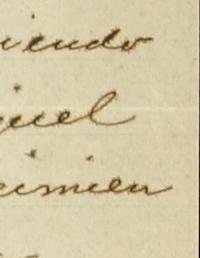 iendo
quel
cimien